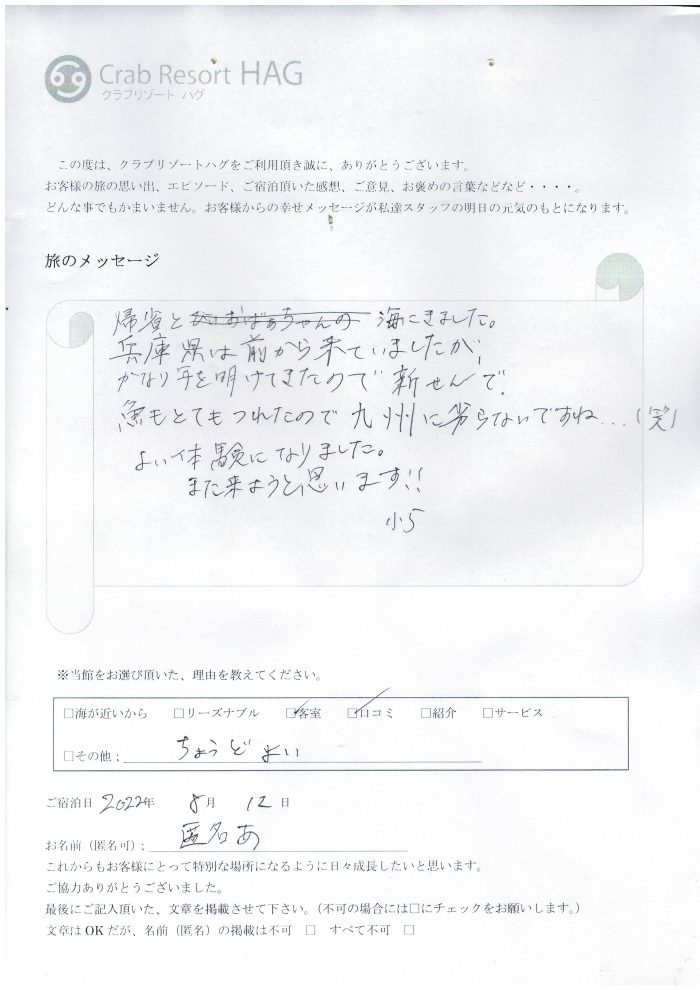 Crab Resort HAG
クラブリゾート ハグ
この度は、クラブリゾートハグをご利用頂き誠に、ありがとうございます。
お客様の旅の思い出、エピソード、ご宿泊頂いた感想、ご意見、お褒めの言葉などなど・・・・。
どんな事でもかまいません。お客様からの幸せメッセージが私達スタッフの明日の元気のもとになります。
旅のメッセージ
帰省とひいおばあちゃんの海にきました。
兵庫県は前から来ていましたが、
かなり年を明けてきたので新せんで、
魚もとてもつれたので九州に劣らないですね...(笑)
よい体験になりました。
また来ようと思います!!
小5
※当館をお選び頂いた、理由を教えてください。
□海が近いから □リーズナブル ☑客室 ☑口コミ □紹介 □サービス
□その他; ちょうどよい
ご宿泊日 2022年 8月 12日
お名前（匿名可）; 匿名あ
これからもお客様にとって特別な場所になるように日々成長したいと思います。
ご協力ありがとうございました。
最後にご記入頂いた、文章を掲載させて下さい。（不可の場合には□にチェックをお願いします。）
文章は OK だが、名前（匿名）の掲載は不可 □ すべて不可 □